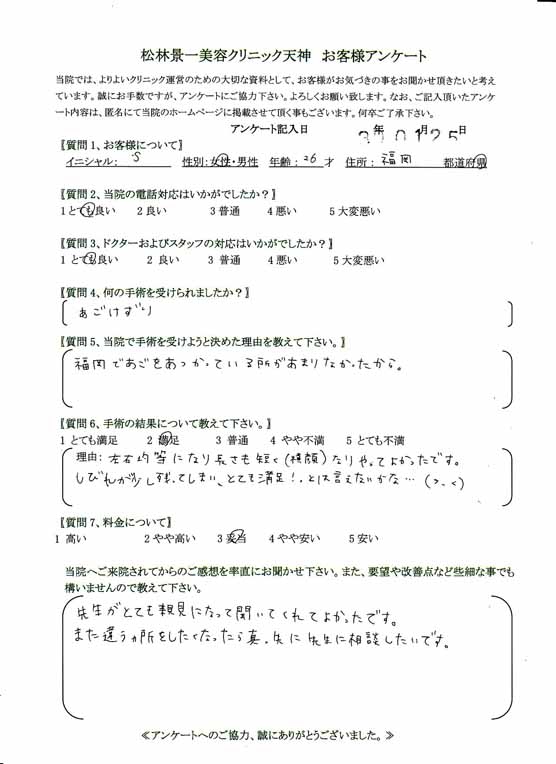 松林景一美容クリニック天神　お客様アンケート
当院では、よりよいクリニック運営のための大切な資料として、お客様がお気づきの事をお聞かせ頂きたいと考え
ています。誠にお手数ですが、アンケートにご協力下さい。よろしくお願い致します。なお、ご記入頂いたアンケ
ート内容は、匿名にて当院のホームページに掲載させて頂く事もございます。何卒ご了承下さい。
アンケート記入日　年　月25日
〖質問1、お客様について〗
イニシャル： S　性別：女性・男性　年齢：26才　住所：福岡　都道府県
〖質問2、当院の電話対応はいかがでしたか？〗
1 とても良い　2 良い　3 普通　4 悪い　5 大変悪い
〖質問3、ドクターおよびスタッフの対応はいかがでしたか？〗
1 とても良い　2 良い　3 普通　4 悪い　5 大変悪い
〖質問4、何の手術を受けられましたか？〗
あごけずり
〖質問5、当院で手術を受けようと決めた理由を教えて下さい。〗
福岡であごをあつかっている所があまりなかったから。
〖質問6、手術の結果について教えて下さい。〗
1 とても満足　2 満足　3 普通　4 やや不満　5 とても不満
理由：左右均等になり長さも短く(横顔)なりやってよかったです。
しびれが少し残ってしまい、とても満足!.とは言えないかな…(>.<)
〖質問7、料金について〗
1 高い　2 やや高い　3 妥当　4 やや安い　5 安い
当院へご来院されてからのご感想を率直にお聞かせ下さい。また、要望や改善点など些細な事でも
構いませんので教えて下さい。
先生がとても親見になって聞いてくれてよかったです。
また違うヵ所をしたくなったら真.先に先生に相談したいです。
≪アンケートへのご協力、誠にありがとうございました。≫